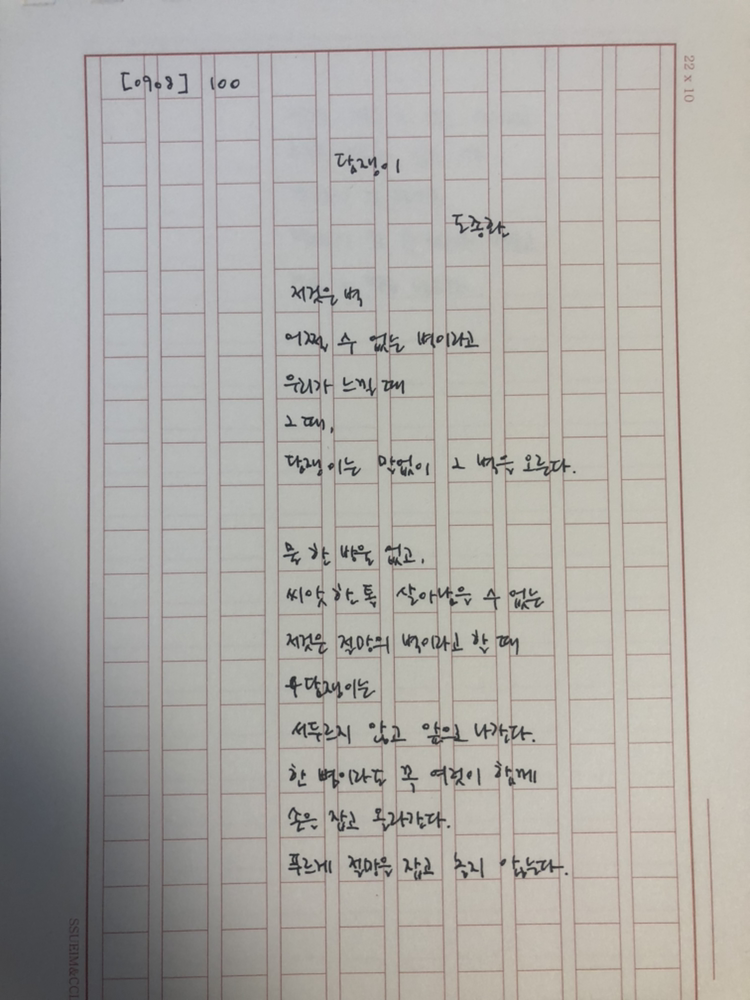 [0908] 100
담쟁이
도종환
저것은 벽
어쩔 수 없는 벽이라고
우리가 느낄 때
그 때,
담쟁이는 말없이 그 벽을 오른다.
물 한 방울 없고,
씨앗 한 톨 살아남을 수 없는
저것은 절망의 벽이라고 할 때
담쟁이는
서두르지 않고 앞으로 나간다.
한 뼘이라도 꼭 여럿이 함께
손을 잡고 올라간다.
푸르게 절망을 잡고 놓지 않는다.
22 x 10